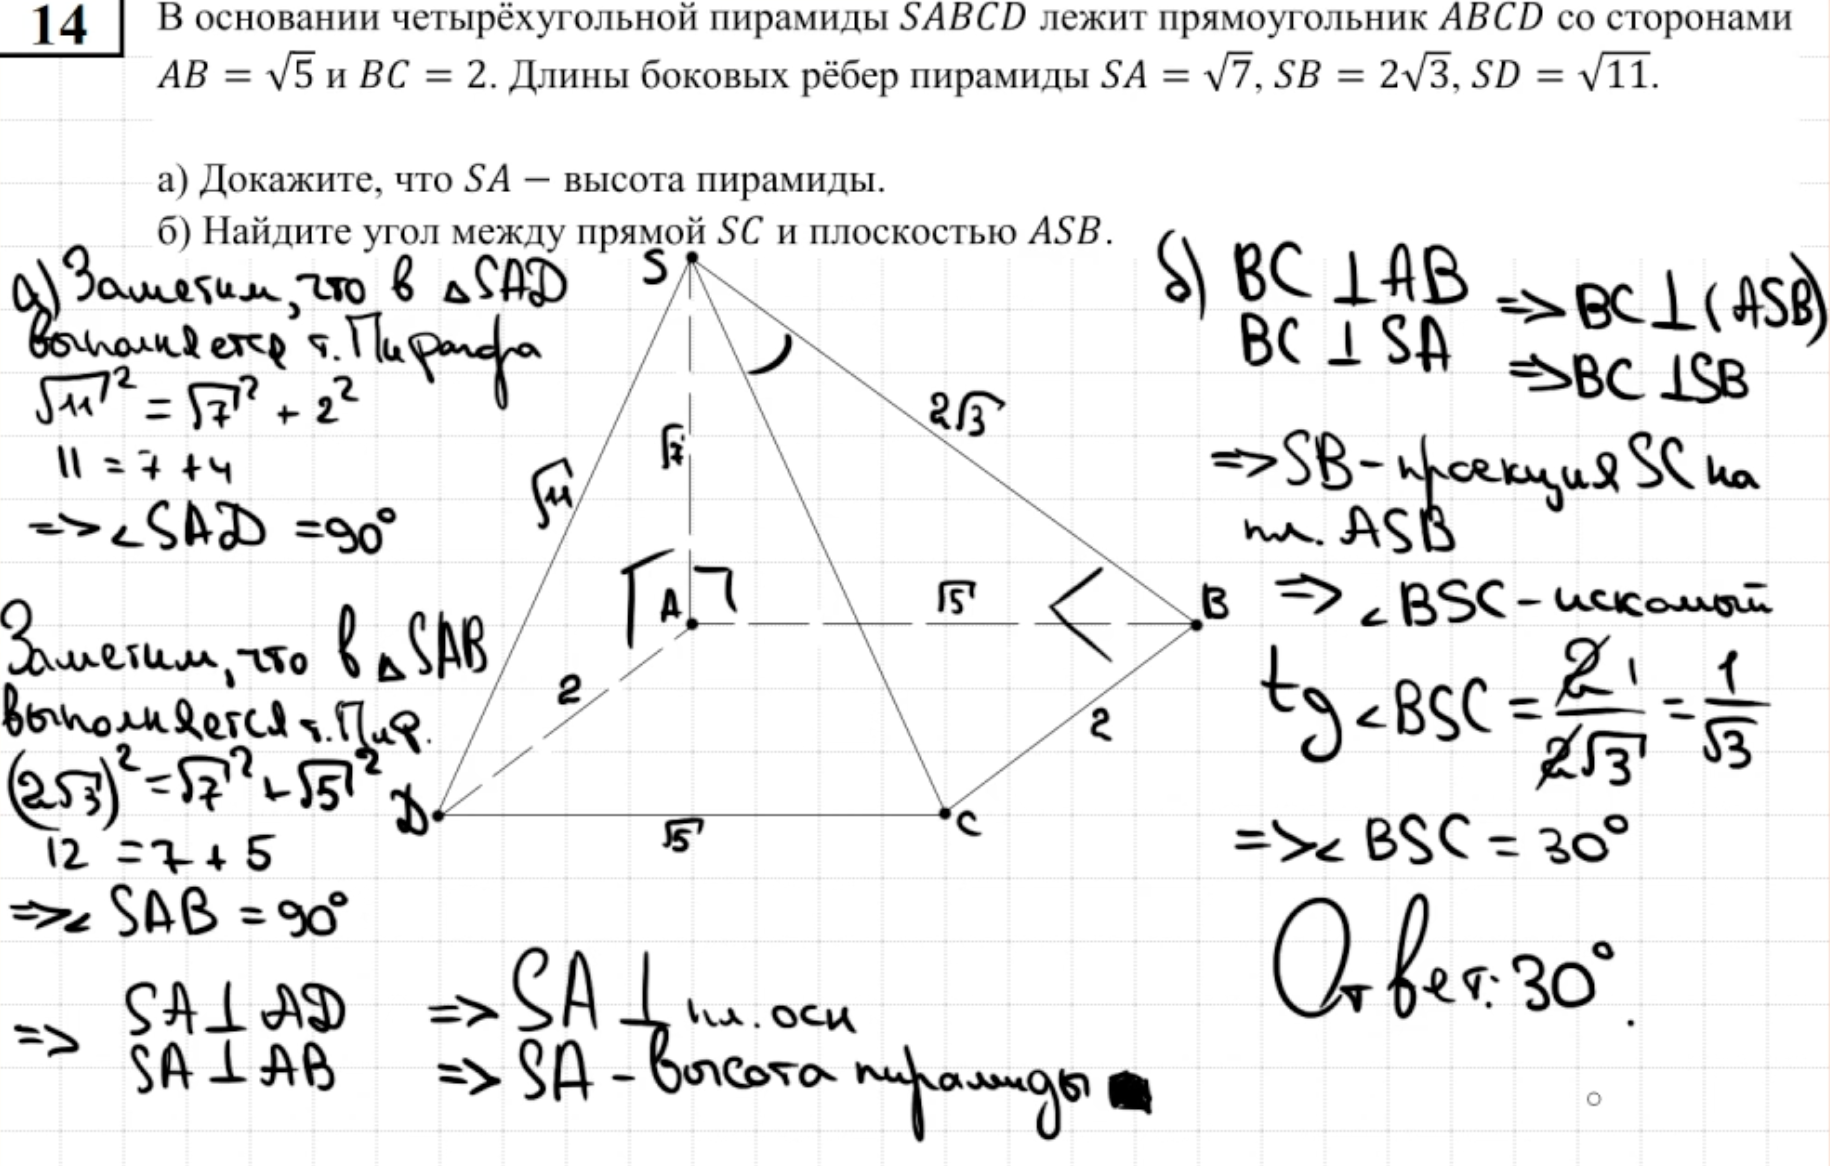 14
В основании четырёхугольной пирамиды SABCD лежит прямоугольник ABCD со сторонами
AB = √5 и BC = 2. Длины боковых рёбер пирамиды SA = √7, SB = 2√3, SD = √11.
а) Докажите, что SA − высота пирамиды.
б) Найдите угол между прямой SC и плоскостью ASB.
а) Заметим, что в △SAD
выполняется т. Пифагора
√11² = √7² + 2²
11 = 7 + 4
=> ∠SAD = 90°
Заметим, что в △SAB
выполняется т. Пиф.
(2√3)² = √7² + √5²
12 = 7 + 5
=> ∠SAB = 90°
=> SA ⊥ AD => SA ⊥ пл. осн
SA ⊥ AB => SA - высота пирамиды
S
√11
√7
2√3
A
√5
B
2
2
D
√5
C
б) BC ⊥ AB => BC ⊥ (ASB)
BC ⊥ SA => BC ⊥ SB
=> SB - проекция SC на
пл. ASB
=> ∠BSC - искомый
tg ∠BSC = 2/2√3 1 = 1/√3
=> ∠BSC = 30°
Ответ: 30°.